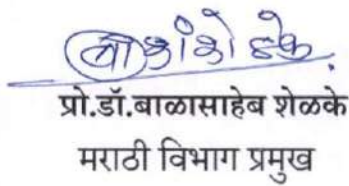 प्रो.डॉ.बाळासाहेब शेळके
मराठी विभाग प्रमुख